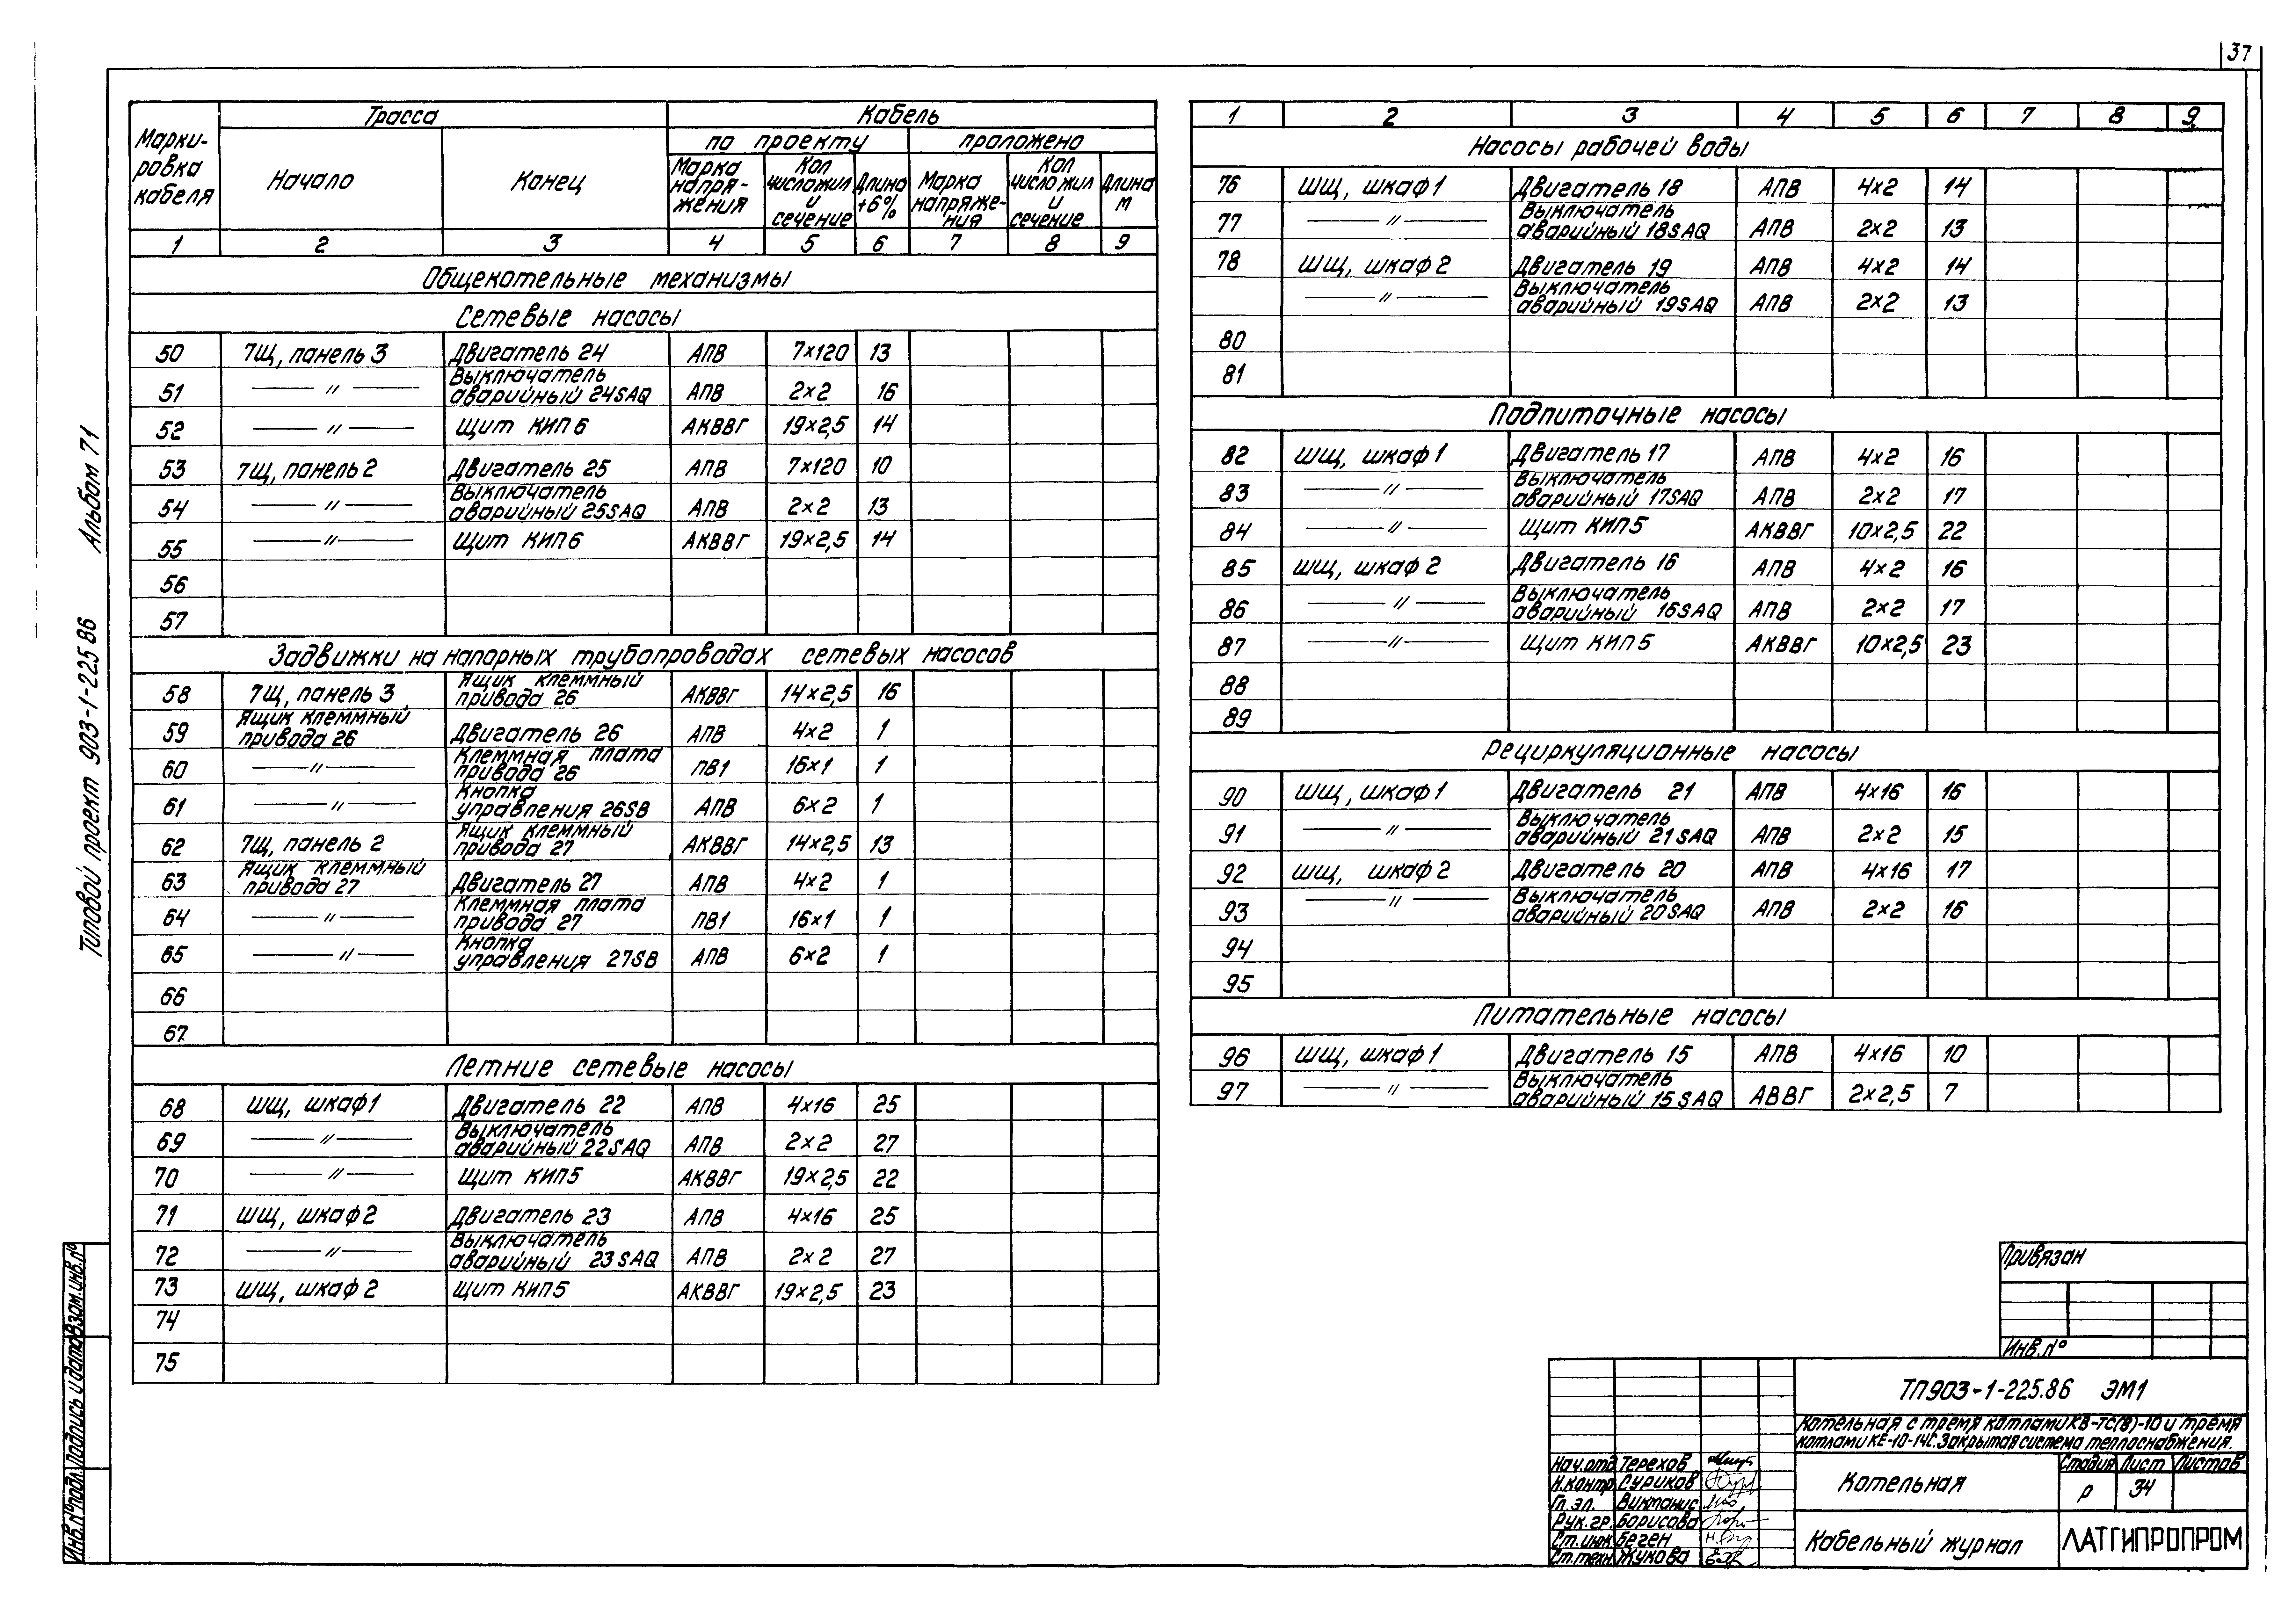 37
Типовой проект 903-1-225 86 Альбом 71
Марки-
ровка
кабеля
Трасса
Кабель
Начало
Конец
по проекту
проложено
Марка
напря-
жения
Кол
число жил
и
сечение
Длина
+6%
Марка
напряже-
ния
Кол
число жил
и
сечение
Длина
м
1 2 3 4 5 6 7 8 9
Общекотельные механизмы
Сетевые насосы
50 7Щ, панель 3 Двигатель 24 АПВ 7×120 13
51 —〃— Выключатель аварийный 24SAQ АПВ 2×2 16
52 —〃— Щит КИП 6 АКВВГ 19×2,5 14
53 7Щ, панель 2 Двигатель 25 АПВ 7×120 10
54 —〃— Выключатель аварийный 25SAQ АПВ 2×2 13
55 —〃— Щит КИП 6 АКВВГ 19×2,5 14
56
57
Задвижки на напорных трубопроводах сетевых насосов
58 7Щ, панель 3 Ящик клеммный привода 26 АКВВГ 14×2,5 16
59 Ящик клеммный привода 26 Двигатель 26 АПВ 4×2 1
60 —〃— Клеммная плата привода 26 ПВ1 16×1 1
61 —〃— Кнопка управления 26SB АПВ 6×2 1
62 7Щ, панель 2 Ящик клеммный привода 27 АКВВГ 14×2,5 13
63 Ящик клеммный привода 27 Двигатель 27 АПВ 4×2 1
64 —〃— Клеммная плата привода 27 ПВ1 16×1 1
65 —〃— Кнопка управления 27SB АПВ 6×2 1
66
67
Летние сетевые насосы
68 ШЩ, шкаф 1 Двигатель 22 АПВ 4×16 25
69 —〃— Выключатель аварийный 22SAQ АПВ 2×2 27
70 —〃— Щит КИП5 АКВВГ 19×2,5 22
71 ШЩ, шкаф 2 Двигатель 23 АПВ 4×16 25
72 —〃— Выключатель аварийный 23SAQ АПВ 2×2 27
73 ШЩ, шкаф 2 Щит КИП5 АКВВГ 19×2,5 23
74
75
1 2 3 4 5 6 7 8 9
Насосы рабочей воды
76 ШЩ, шкаф 1 Двигатель 18 АПВ 4×2 14
77 —〃— Выключатель аварийный 18SAQ АПВ 2×2 13
78 ШЩ, шкаф 2 Двигатель 19 АПВ 4×2 14
—〃— Выключатель аварийный 19SAQ АПВ 2×2 13
80
81
Подпиточные насосы
82 ШЩ, шкаф 1 Двигатель 17 АПВ 4×2 16
83 —〃— Выключатель аварийный 17SAQ АПВ 2×2 17
84 —〃— Щит КИП5 АКВВГ 10×2,5 22
85 ШЩ, шкаф 2 Двигатель 16 АПВ 4×2 16
86 —〃— Выключатель аварийный 16SAQ АПВ 2×2 17
87 —〃— Щит КИП5 АКВВГ 10×2,5 23
88
89
Рециркуляционные насосы
90 ШЩ, шкаф 1 Двигатель 21 АПВ 4×16 16
91 —〃— Выключатель аварийный 21SAQ АПВ 2×2 15
92 ШЩ, шкаф 2 Двигатель 20 АПВ 4×16 17
93 —〃— Выключатель аварийный 20SAQ АПВ 2×2 16
94
95
Питательные насосы
96 ШЩ, шкаф 1 Двигатель 15 АПВ 4×16 10
97 —〃— Выключатель аварийный 15SAQ АВВГ 2×2,5 7
Привязан
Инв.№
ТП903-1-225.86 ЭМ1
Котельная с тремя котлами КВ-ТС(В)-10 и тремя
котлами КЕ-10-14С. Закрытая система теплоснабжения.
Нач.отд Терехов
Н.контр Суриков
Гл.эл. Виктанис
Рук.гр. Борисова
Ст.инж Беген
Ст.техн. Жукова
Котельная
Стадия Лист Листов
р 34
Кабельный журнал
ЛАТГИПРОПРОМ
Инв.№подл. Подпись и дата Взам.инв.№